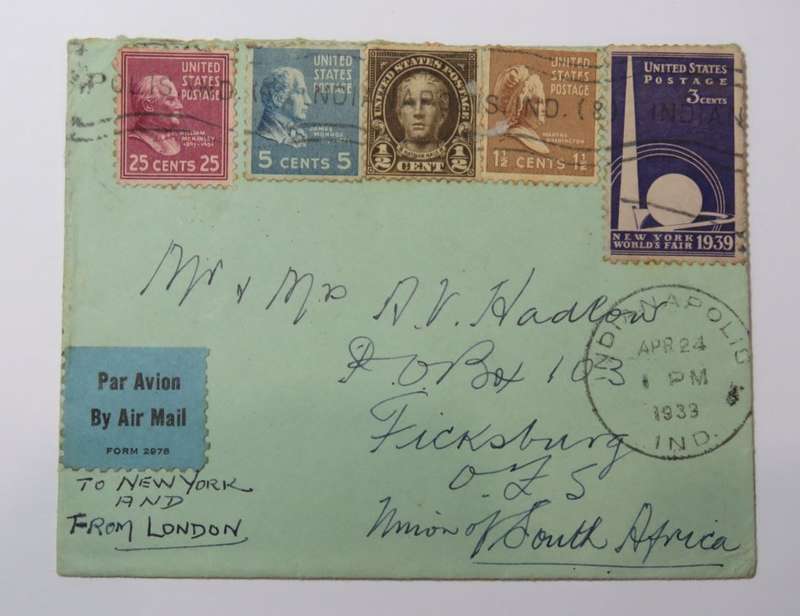 POLIS, IND. INDIANAPOLIS, IND. (&) INDIAN
UNITED
STATES
POSTAGE
WILLIAM
McKINLEY
1897-1901
25 CENTS 25
UNITED
STATES
POSTAGE
JAMES
MONROE
5 CENTS 5
UNITED STATES POSTAGE
1/2 CENT 1/2
UNITED
STATES
POSTAGE
MARTHA
WASHINGTON
1½ CENTS 1½
UNITED STATES
POSTAGE
3 CENTS
NEW YORK
WORLD'S FAIR 1939
Mr & Mrs A.V. Hadlow
P.O Box 103
Ficksburg
O.F.S
Union of South Africa
INDIANAPOLIS
APR 24
1 PM
1939
IND.
Par Avion
By Air Mail
FORM 2978
TO NEW YORK
AND
FROM LONDON